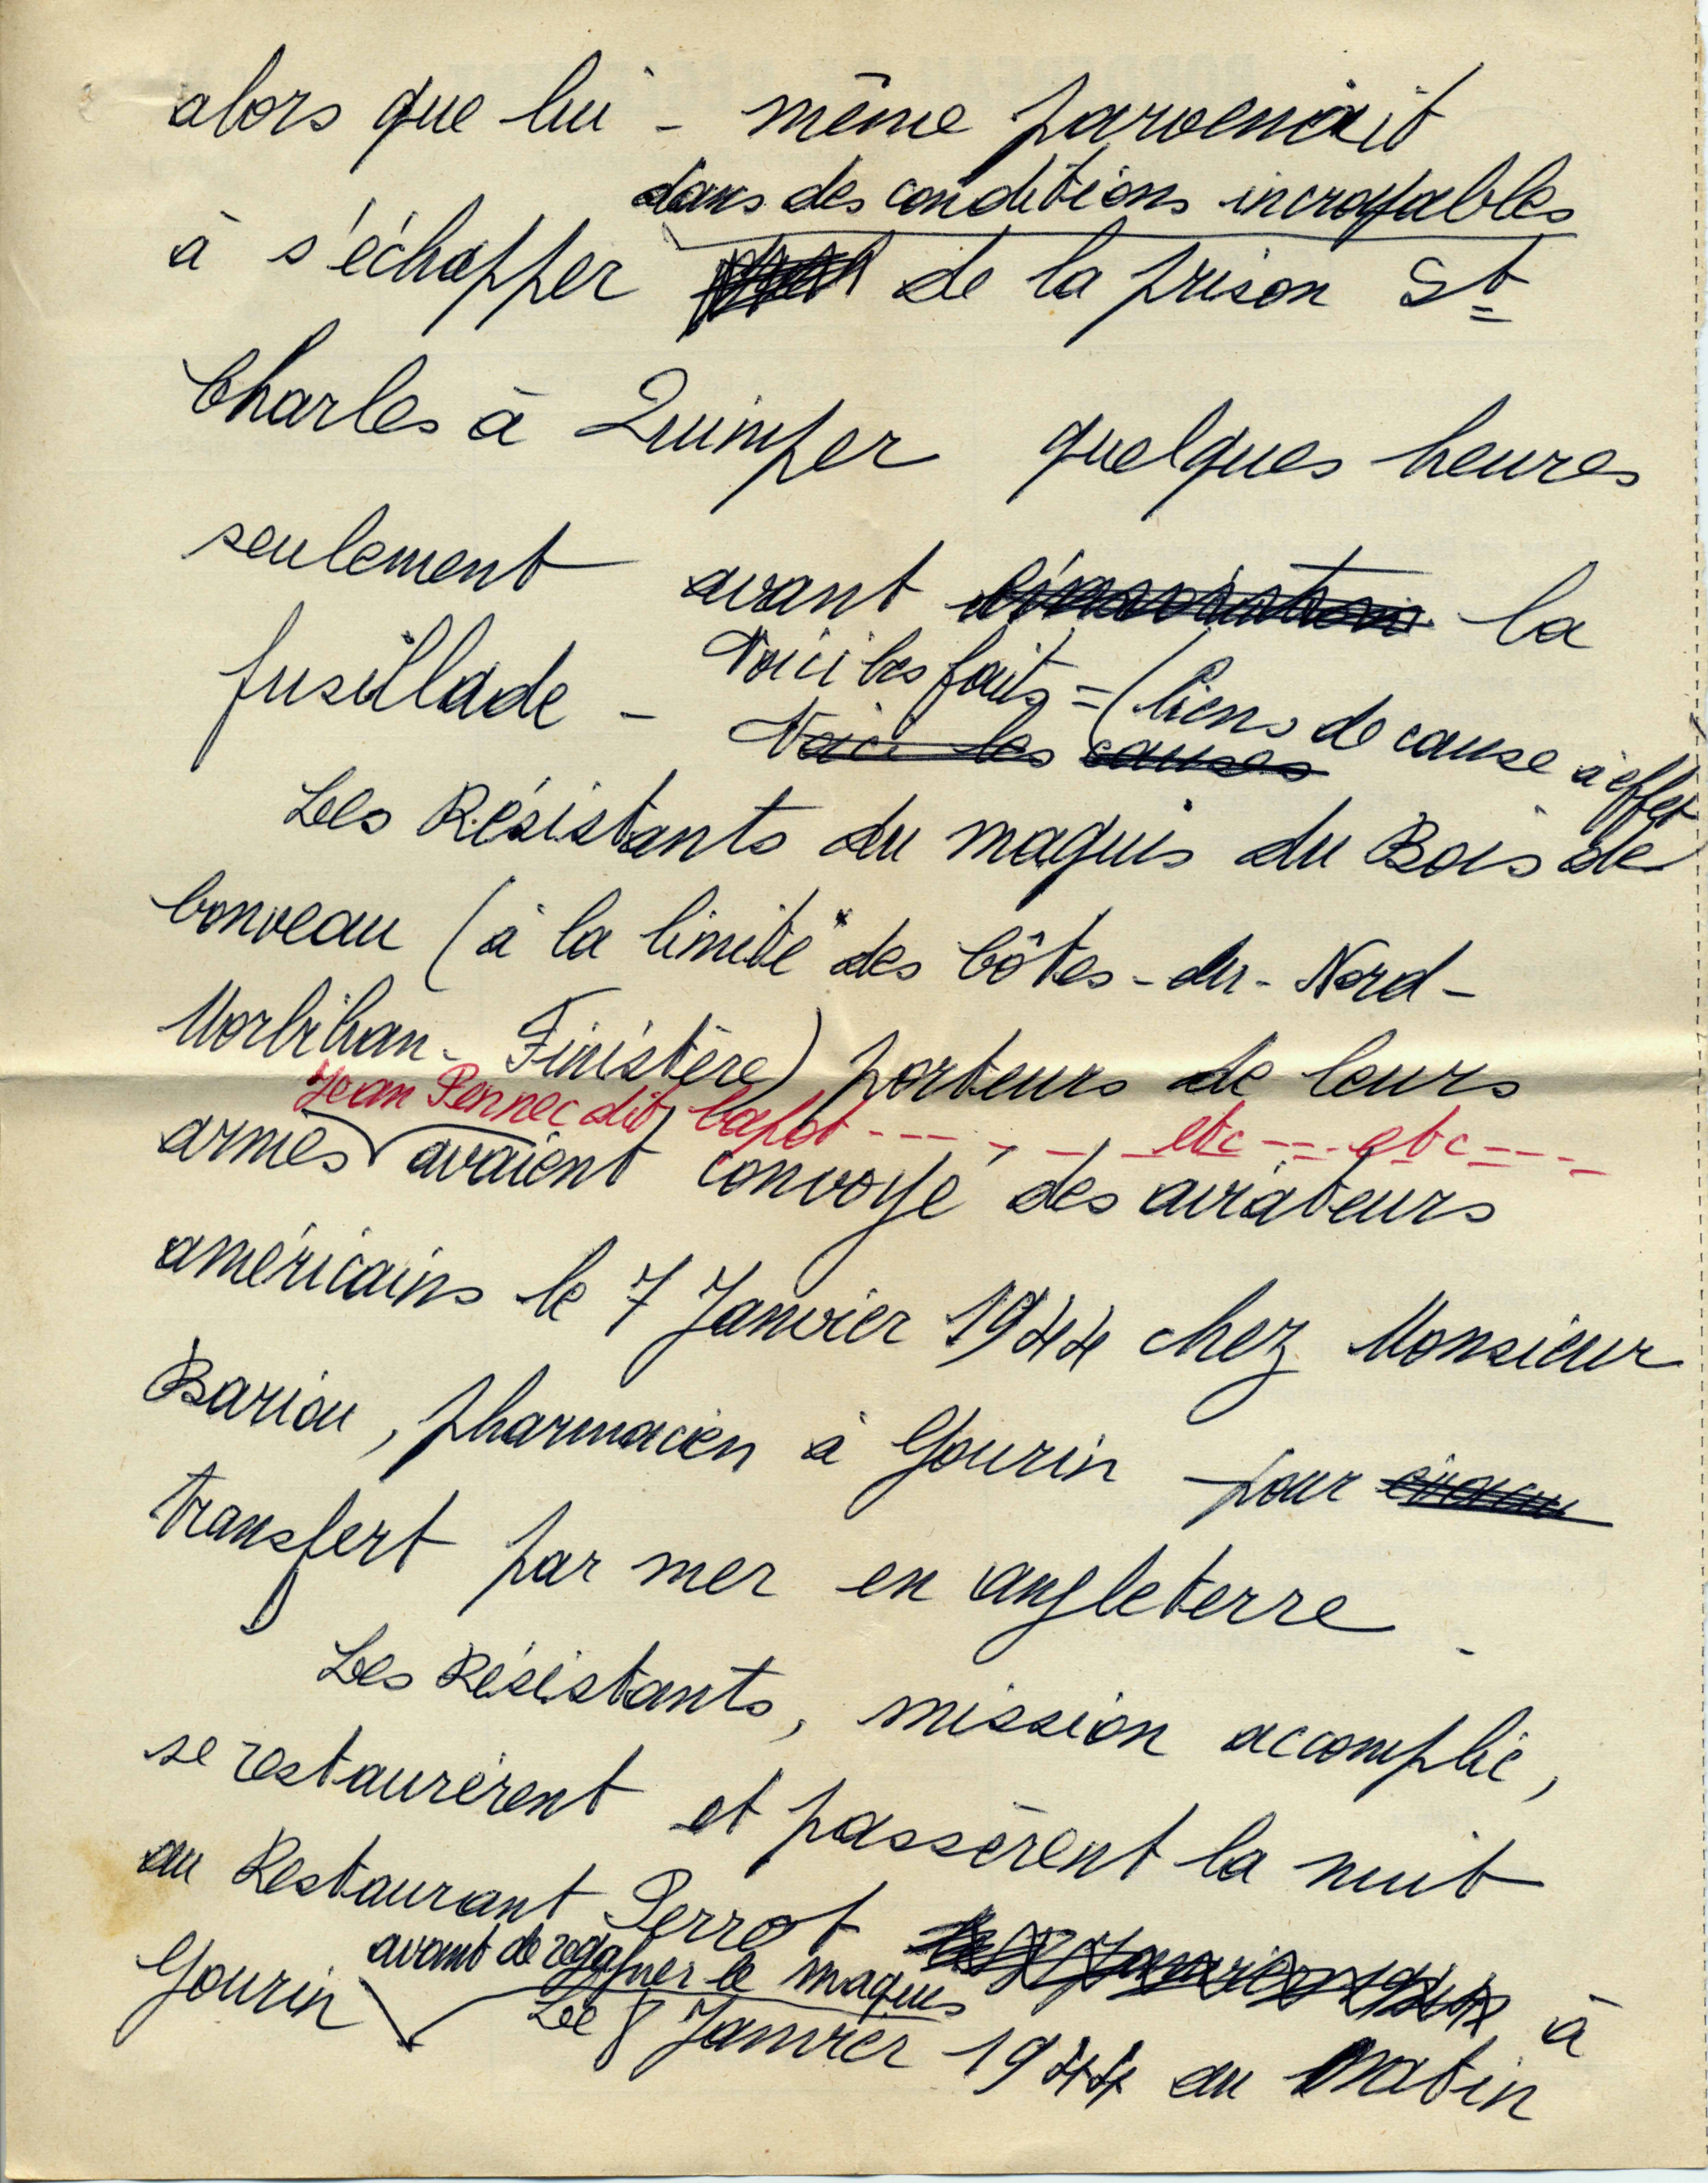 alors que lui - même parvenait
dans des conditions incroyables
à s'échapper de la prison St
Charles à Quimper quelques heures
seulement avant la
fusillade - Voici les faits = (liens de cause à effet
Voici les causes
Les Résistants du maquis du Bois de
Conveau (à la limite des Côtes-du-Nord-
Morbihan - Finistère) porteurs de leurs
Jean Pennec dit Capot ---- etc -- etc ---
armes avaient convoyé des aviateurs
américains le 7 Janvier 1944 chez Monsieur
Bariou, pharmacien à Gourin pour
transfert par mer en angleterre -
Les Résistants, mission accomplie,
se restaurèrent et passèrent la nuit
au Restaurant Perrot le 7 Janvier 1944 à
avant de regagner le maquis
Gourin Le 8 Janvier 1944 au matin